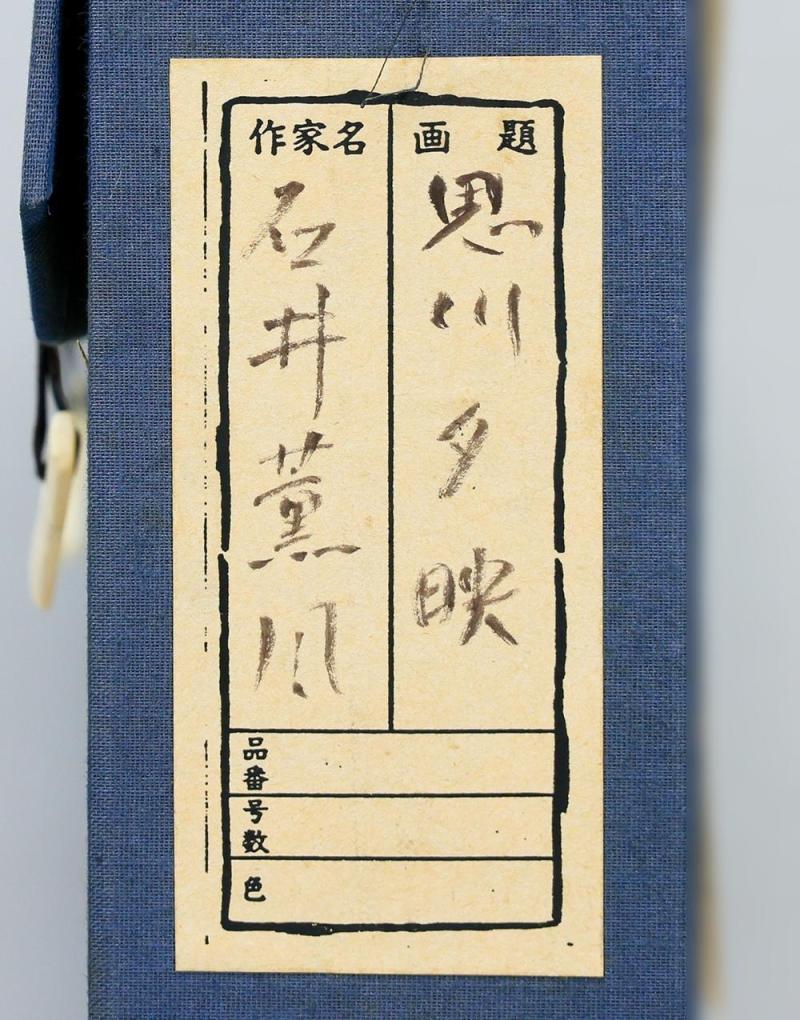 画題
思川夕映
作家名
石井薫風
品番
号数
色